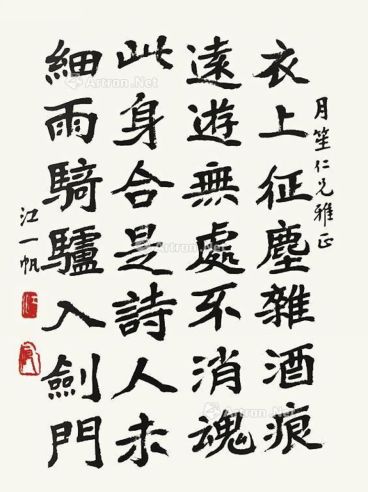 月笙仁兄雅正
衣上征塵雜酒痕
遠遊無處不消魂
此身合是詩人未
細雨騎驢入劍門
江一帆
Artron.Net
Artron.Net
Artron.Net
Artron.Net